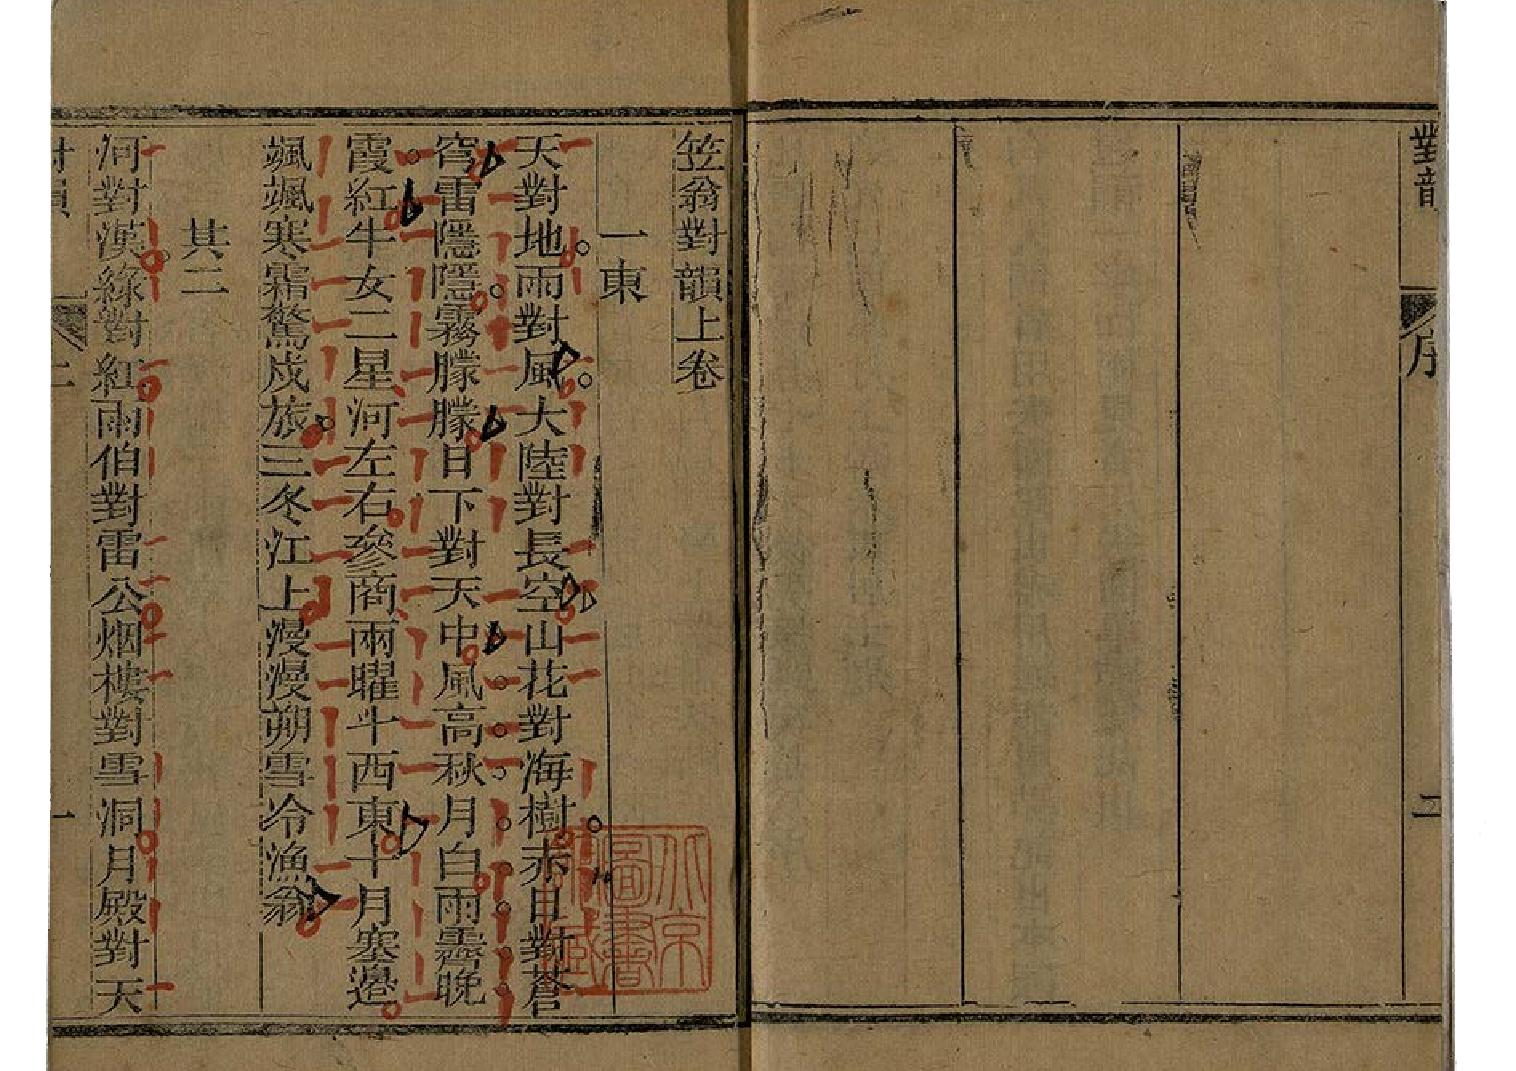 對韻
序
二
笠翁對韻上卷
一東
天對地雨對風大陸對長空山花對海樹赤日對蒼
穹雷隱隱霧朦朦日下對天中風高秋月白雨霽晚
霞紅牛女二星河左右參商兩曜斗西東十月塞邉
颯颯寒霜驚戍旅三冬江上漫漫朔雪冷漁翁
其二
河對漢綠對紅雨伯對雷公烟樓對雪洞月殿對天
對韻
一